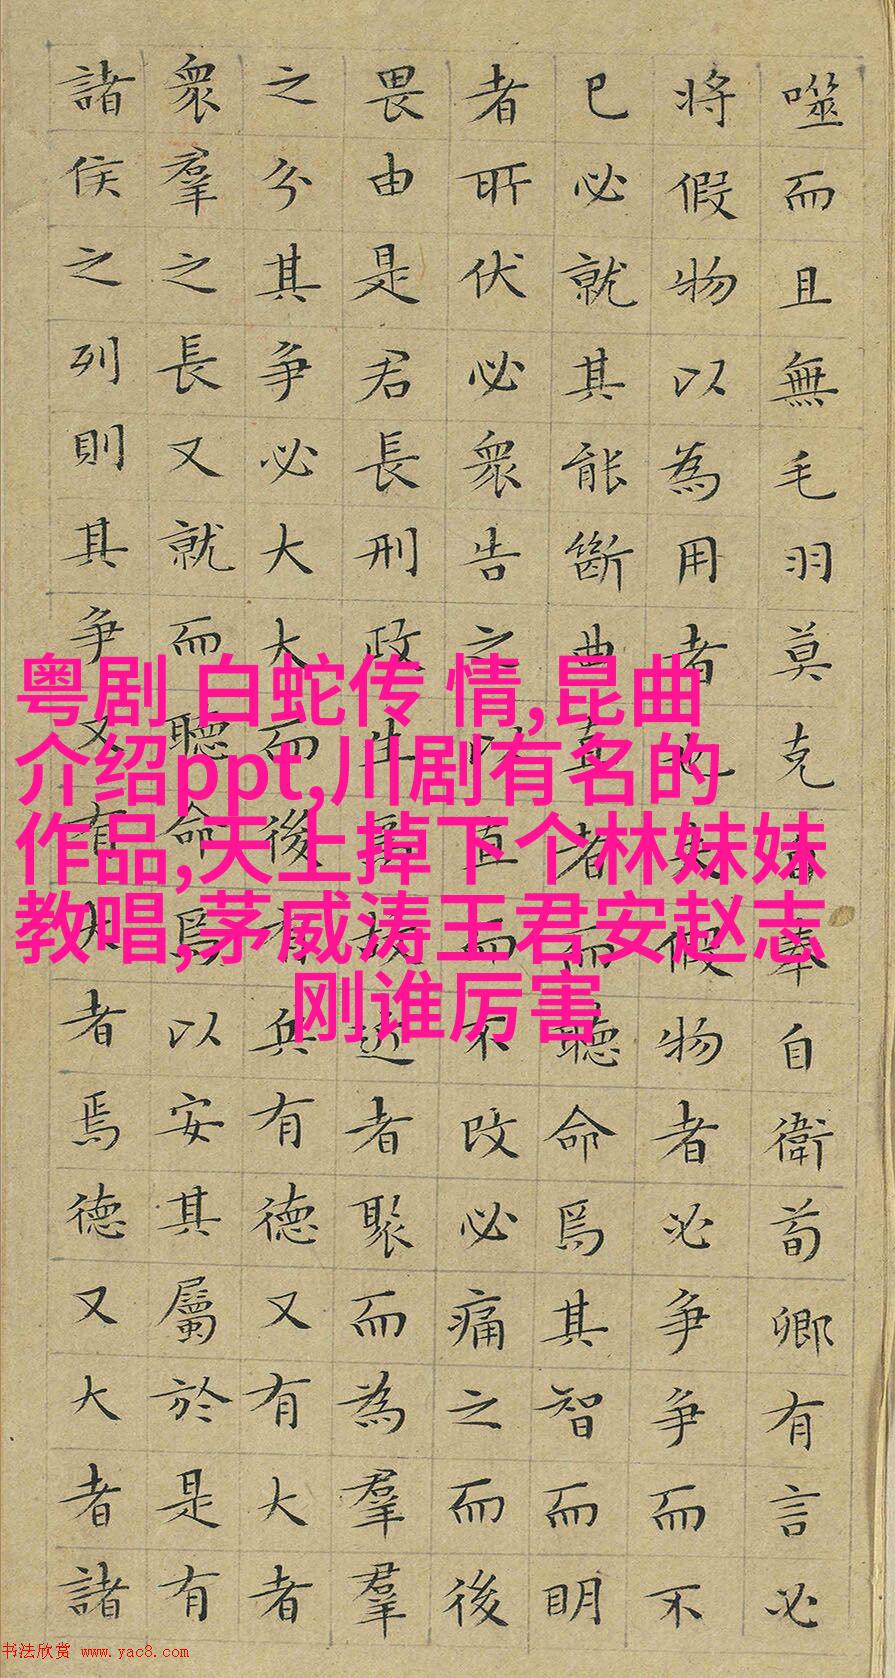 噬而且無毛羽莫克自奉自衛荀卿有言必
將假物以為用者也夫假物者必爭爭而不
已必就其能斷曲直者而聽命焉其智而明
者所伏必衆告之以直而不改必痛之而後
畏由是君長刑政生焉故近者聚而為羣羣
之分其爭必大大而後有兵有德又有大者
衆羣之長又就而聽命焉以安其屬於是有
諸侯之列則其爭又有大者焉德又大者諸
粤剧 白蛇传 情,昆曲
介绍ppt,川剧有名的
作品,天上掉下个林妹妹
教唱,茅威涛王君安赵志
刚谁厉害
书法欣赏 www.yac8.com